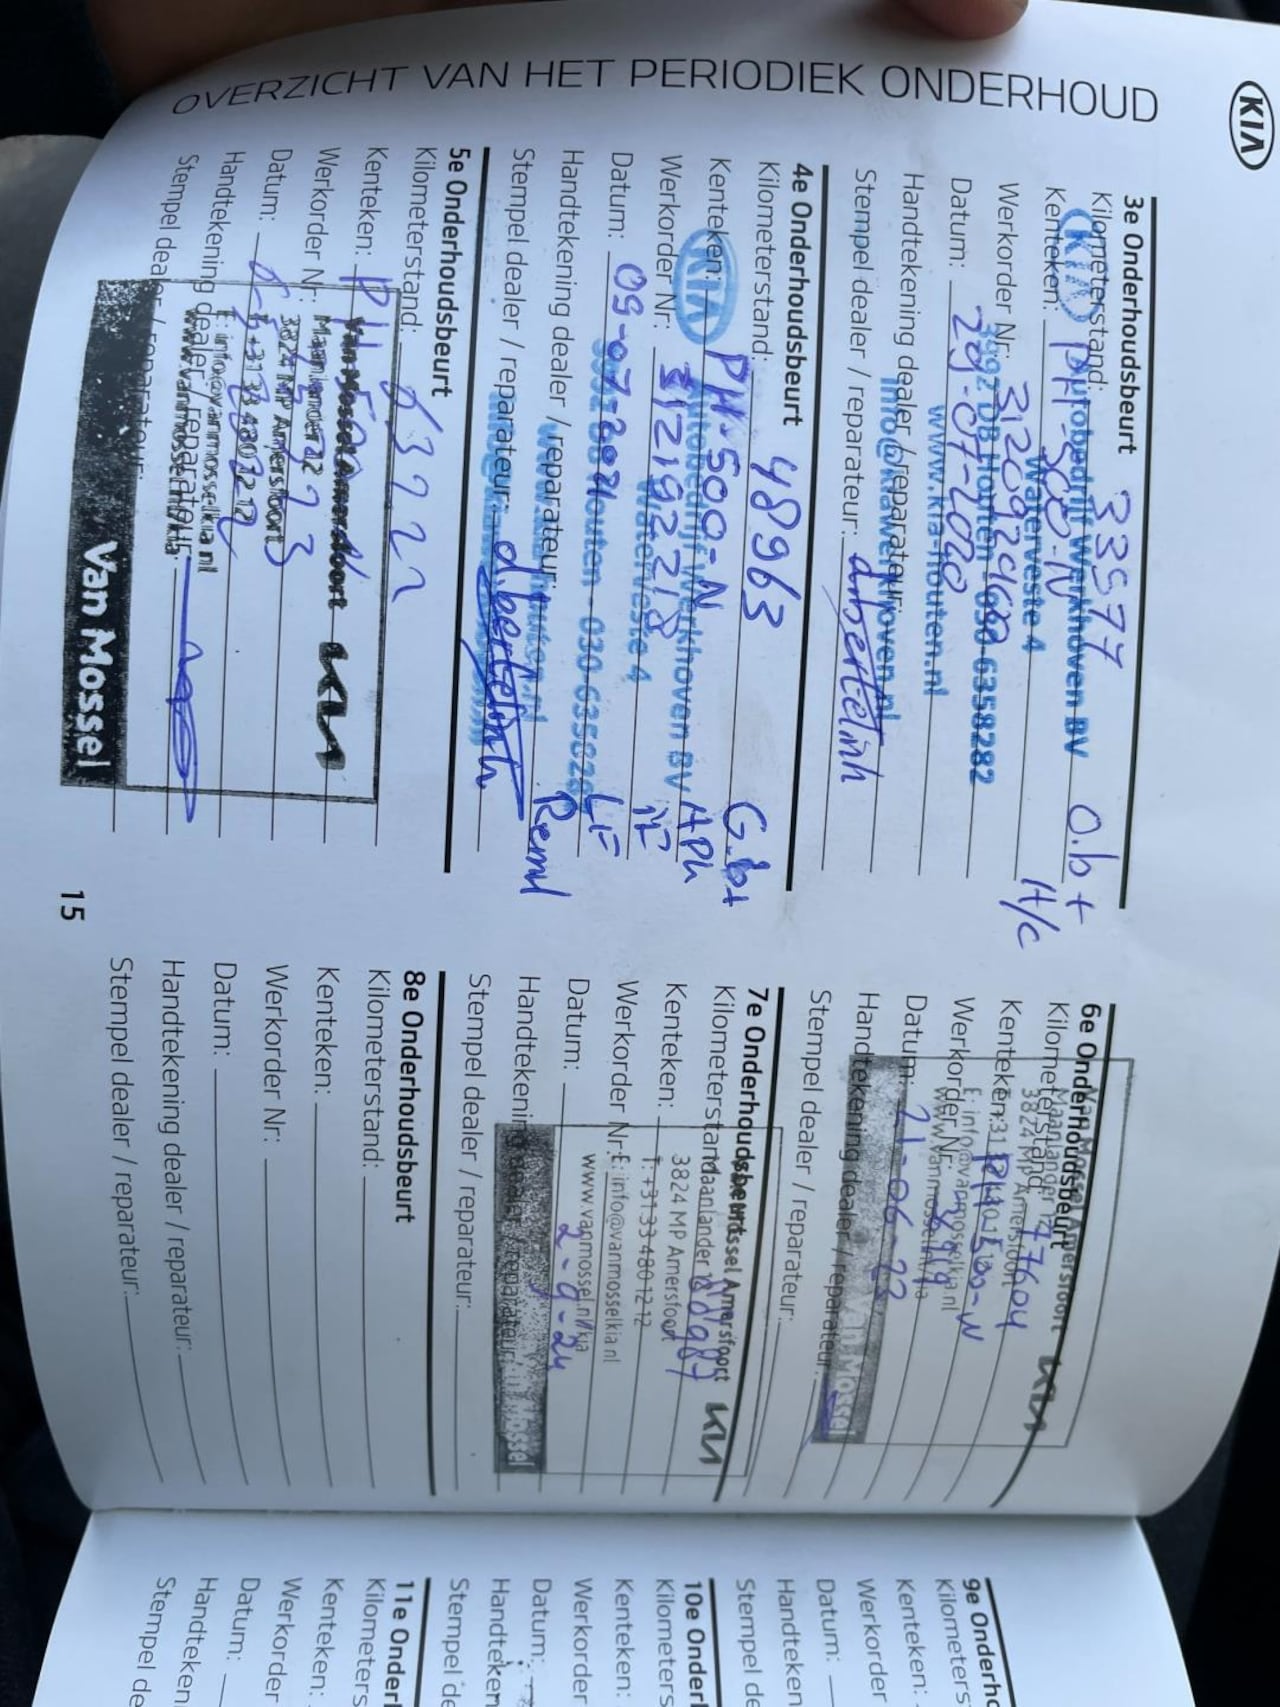 KIA
OVERZICHT VAN HET PERIODIEK ONDERHOUD
3e Onderhoudsbeurt
Kilometerstand: 33577
Kenteken: PH-500-N
O.b +
H/c
Werkorder Nr:
Datum: 29-07-2020
Handtekening dealer / reparateur:
Stempel dealer / reparateur:
KIA
Autobedrijf Werkhoven BV
Wagerveste 4
www.kia-houten.nl
4e Onderhoudsbeurt
Kilometerstand: 48963
Kenteken: PH-500-N
Werkorder Nr: 312192218
Datum: 09-07-2021
Handtekening dealer / reparateur:
Stempel dealer / reparateur:
KIA
Autobedrijf Werkhoven BV
5e Onderhoudsbeurt
Kilometerstand: 63722
Kenteken:
Werkorder Nr:
Datum:
Handtekening dealer / reparateur:
Stempel dealer / reparateur:
Maanlander 12
3824 MP Amersfoort
T: +31 33 480 12 12
E: info@vanmosselkia.nl
www.vanmossel.nl/kia
KIA
Van Mossel
15
6e Onderhoudsbeurt
Kilometerstand: 77604
Kenteken: PH-500-N
Werkorder Nr:
Datum: 21-06-23
Handtekening dealer / reparateur:
Stempel dealer / reparateur:
Van Mossel Amersfoort
Maanlander 12
3824 MP Amersfoort
E: info@vanmosselkia.nl
www.vanmossel.nl/kia
KIA
Van Mossel
7e Onderhoudsbeurt
Kilometerstand:
Kenteken:
Werkorder Nr:
Datum: 2-9-24
Handtekening dealer / reparateur:
Stempel dealer / reparateur:
Maanlander
3824 MP Amersfoort
T: +31 33 480 12 12
E: info@vanmosselkia.nl
www.vanmossel.nl/kia
KIA
Van Mossel
8e Onderhoudsbeurt
Kilometerstand:
Kenteken:
Werkorder Nr:
Datum:
Handtekening dealer / reparateur:
Stempel dealer / reparateur:
9e Onderho
Kilometers
Kenteken:
Werkorder
Datum:
Handteken
Stempel de
10e Onder
Kilometers
Kenteken:
Werkorder
Datum:
Handteken
Stempel de
11e Onder
Kilometers
Kenteken:
Werkorder
Datum:
Handteken
Stempel de